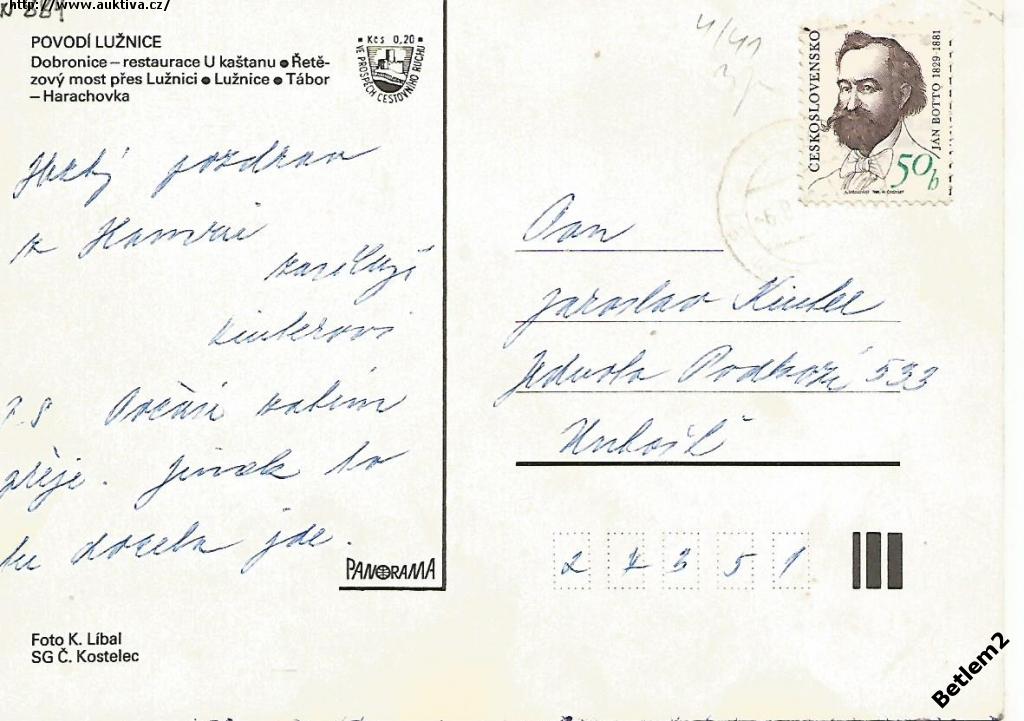 http://www.auktiva.cz/
POVODÍ LUŽNICE
Dobronice – restaurace U kaštanu ● Řetě-
zový most přes Lužnici ● Lužnice ● Tábor
– Harachovka
Kčs 0,20
VE PROSPĚCH CESTOVNÍHO RUCHU
Hezký pozdrav
z
zasílají
Kinterovi
P.S. Počasí zatím
přeje. Jinak to
tu docela jde.
PANORAMA
Foto K. Líbal
SG Č. Kostelec
4/41
ČESKOSLOVENSKO
JÁN BOTTO 1829-1881
50h
Pan
Jaroslav
533
Unhošť
2 7 3 5 1
Betlem2